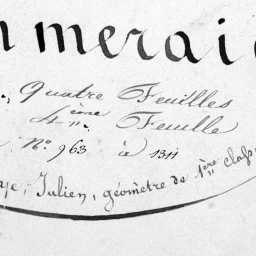 nmerai
Quatre Feuilles
4ème Feuille
N° 963 à 1311
Julien, géomètre de 1ère class